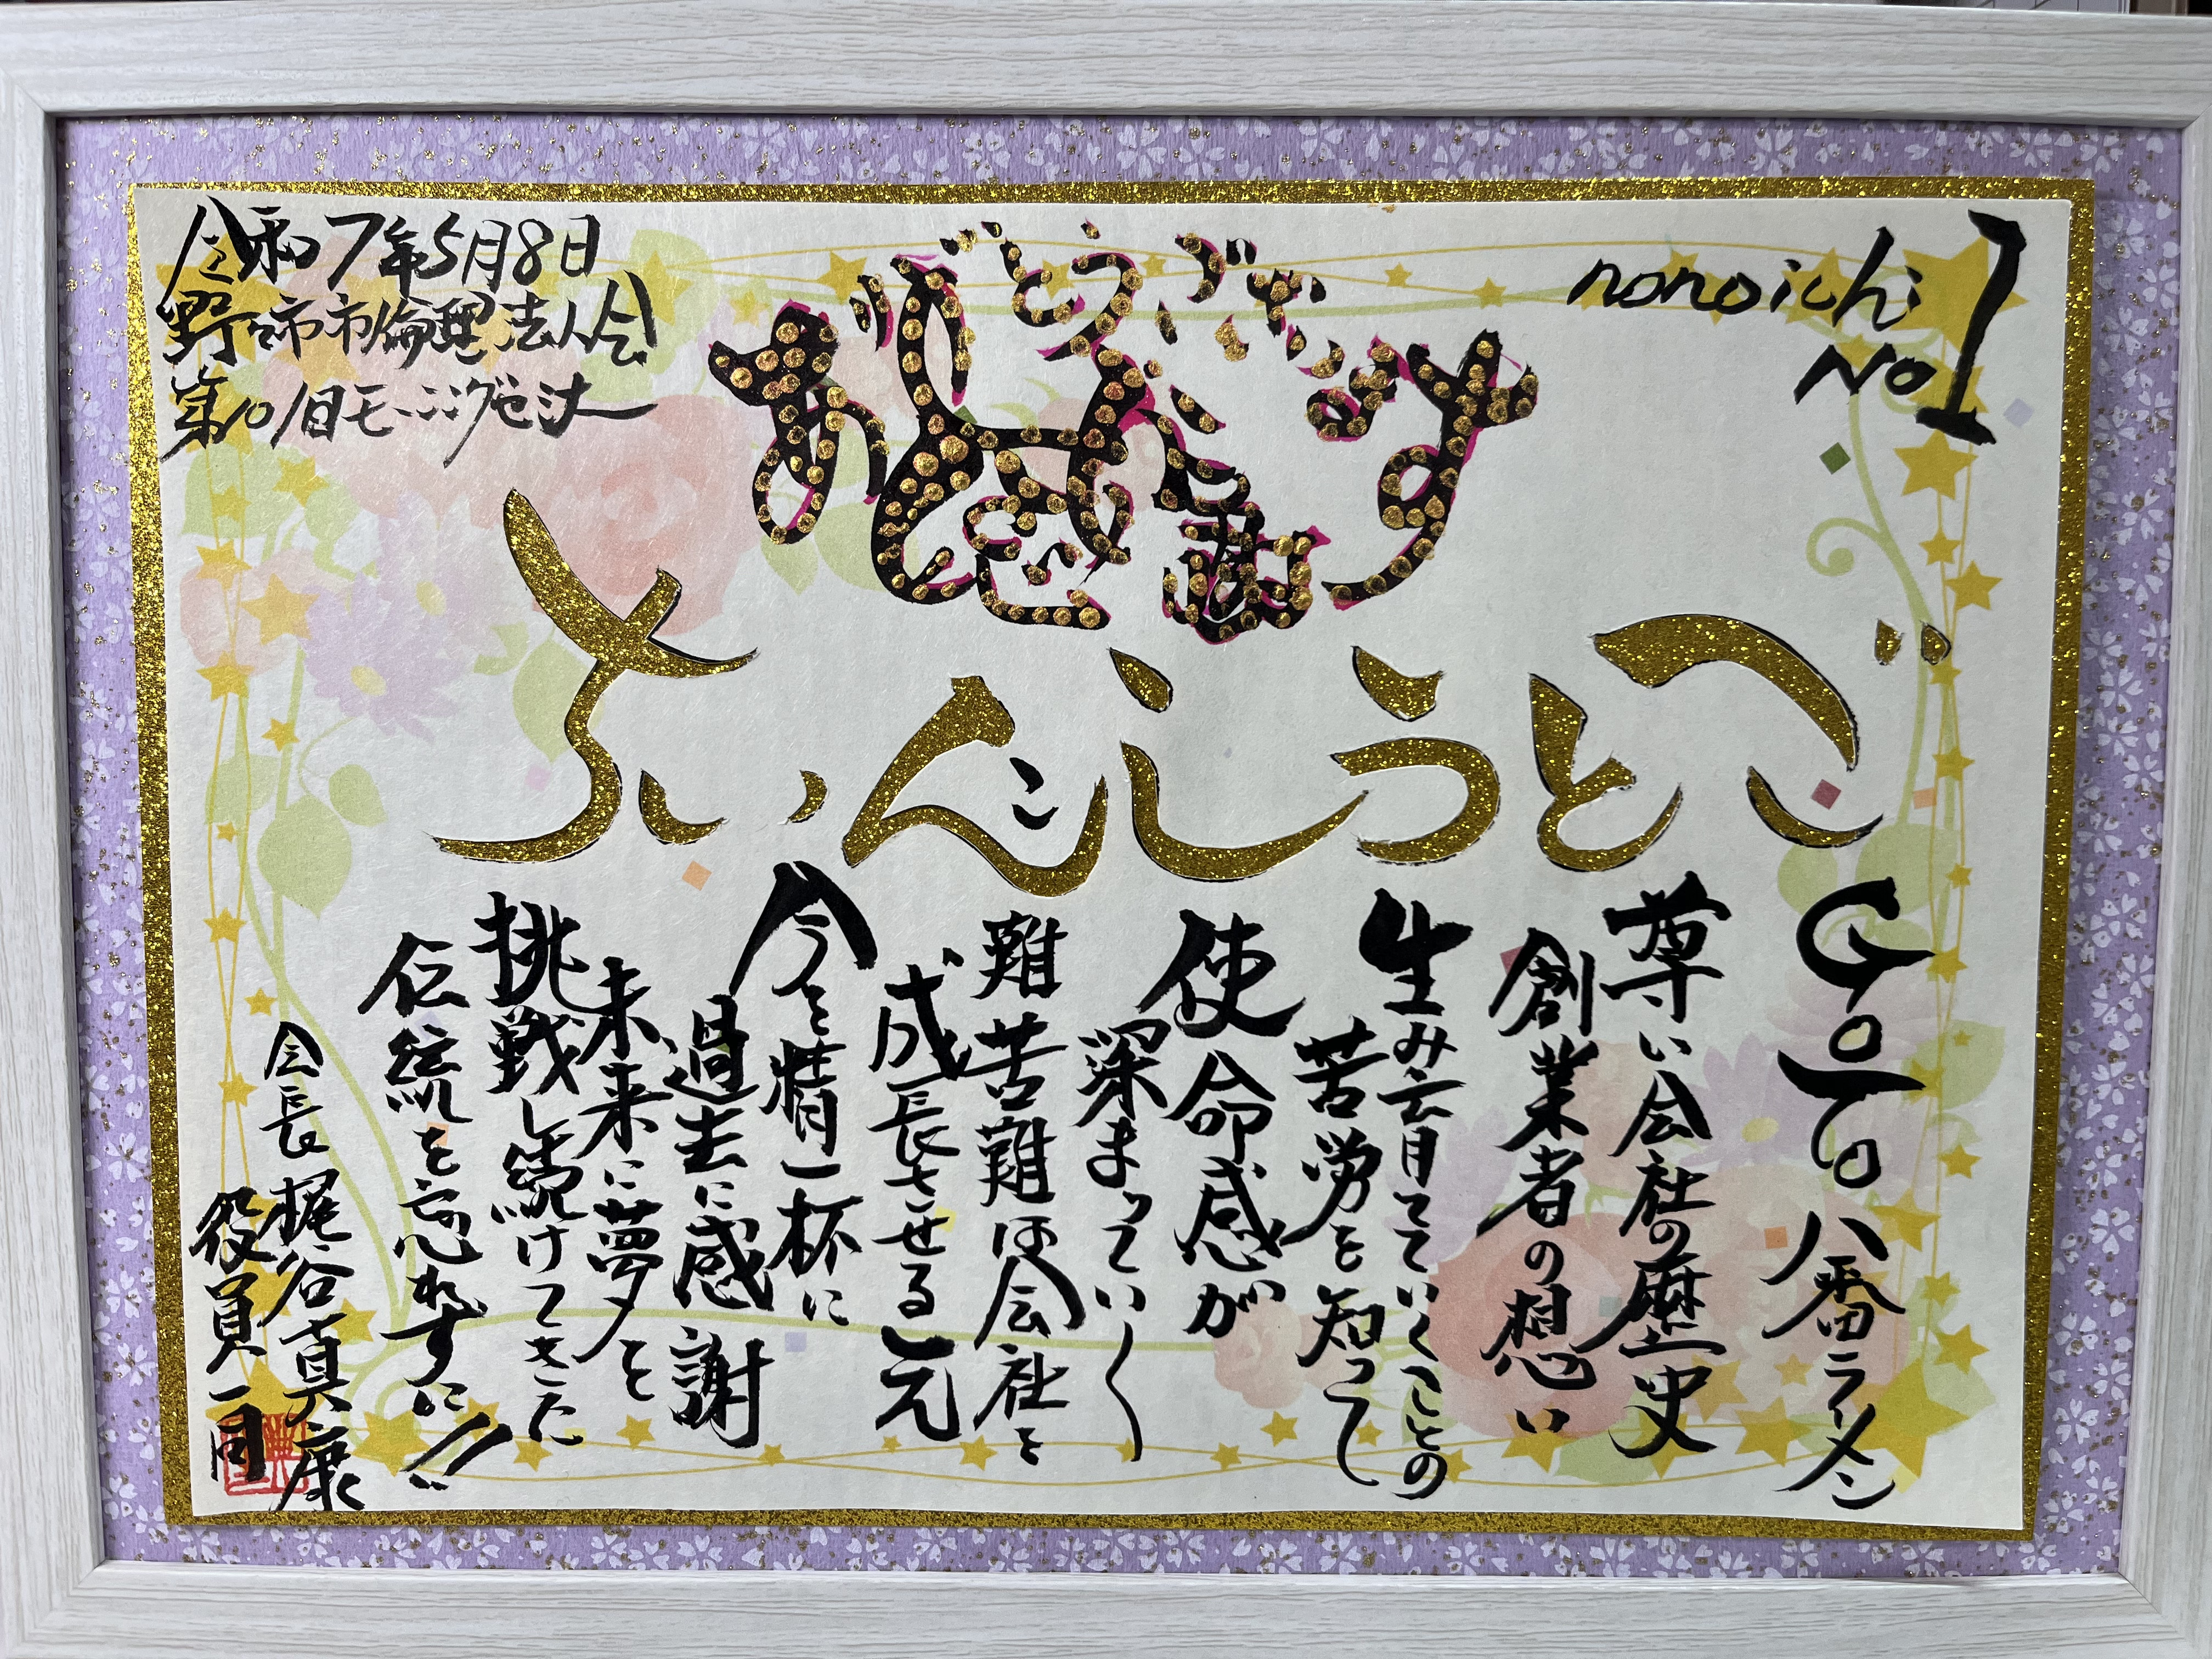 令和7年5月8日
野々市市倫理法人会
第101回モーニングセミナー
ありがとうございます
感謝
nonoichi
No1
ごとうしんいち
GoTo八番ラーメン
尊い会社の歴史
創業者の想い
生み育てていくことの
苦労を知って
使命感が
深まっていく
難苦難は会社を
成長させる元
今を精一杯に
過去に感謝
未来に夢を
挑戦し続けてきた
伝統を忘れずに!!
会長 梶谷真康
役員一同